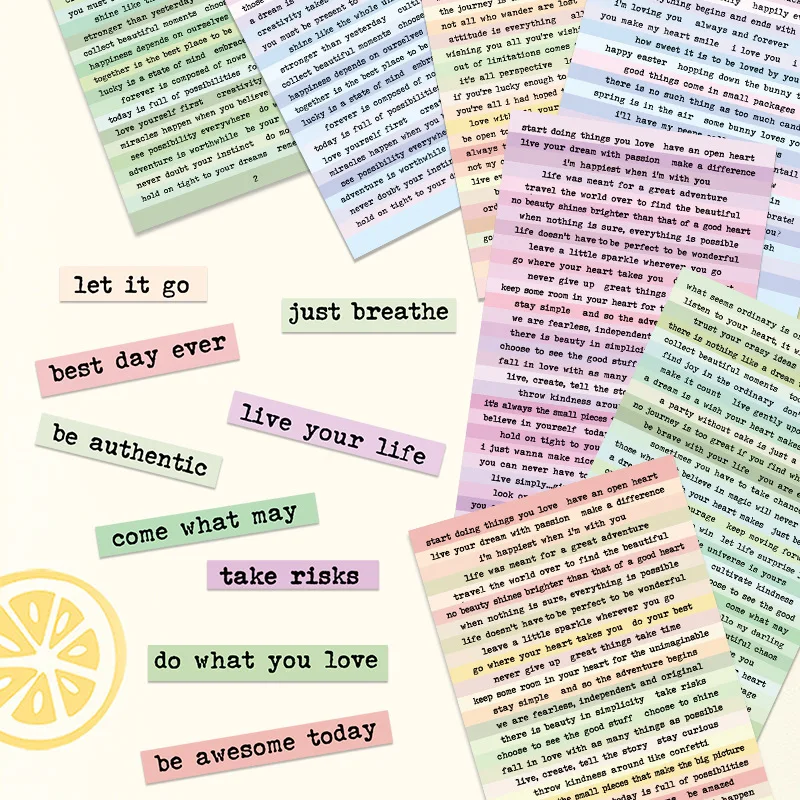 you must
shine like
stronger than yesterday
collect beautiful moments choose
happiness depends on ourselves
together is the best place to be
lucky is a state of mind embrace
forever is composed of nows
today is full of possibilities
love yourself first creativity
miracles happen when you believe
see possibility everywhere do
adventure is worthwhile be your
never doubt your instinct do
hold on tight to your dreams
2
a dream is
creativity takes
you must be present to
shine like the whole
stronger than yesterday
collect beautiful moments choose
happiness depends on ourselves
together is the best place to be
lucky is a state of mind
forever is composed of
today is full of possibilities
love yourself first
miracles happen when you
see possibility everywhere
adventure is worthwhile
never doubt your instinct
hold on tight to your
the journey is
not all who wander are lost
attitude is everything
wishing you all you're
out of limitations comes
it's all perspective
if you're lucky enough to
you're all i had hoped
love with
be open to
always
not my
live
i'm loving you always and forever
you make my heart smile i love you
how sweet it is to be loved by you
happy easter hopping down the bunny
good things come in small packages
there is no such thing as too much
spring is in the air some bunny loves you
i'll have my peeps
start doing things you love have an open heart
live your dream with passion make a difference
i'm happiest when i'm with you
life was meant for a great adventure
travel the world over to find the beautiful
no beauty shines brighter than that of a good heart
when nothing is sure, everything is possible
life doesn't have to be perfect to be wonderful
leave a little sparkle wherever you go
go where your heart takes you
never give up great things
keep some room in your heart for
stay simple and so the
we are fearless, independent
there is beauty in simplicity
choose to see the good stuff
fall in love with as many
live, create, tell the
throw kindness around
it's always the small pieces
believe in yourself
hold on tight to
i just wanna make
you can never have
live simply
look
you
what seems ordinary is
listen to your heart, it
trust your crazy ideas
there is nothing like a dream
collect beautiful moments
find joy in the ordinary
make it count live gently
a dream is a wish your heart makes
a party without cake is just a
no journey is too great if you find
be brave with your life you are
sometimes you have to take
those who believe in magic will never
your heart makes just be
keep moving forward
win let life surprise
universe is yours
cultivate kindness
choose to see the good
come what may
my darling
beautiful chaos
start doing things you love have an open heart
live your dream with passion make a difference
i'm happiest when i'm with you
life was meant for a great adventure
travel the world over to find the beautiful
no beauty shines brighter than that of a good heart
when nothing is sure, everything is possible
life doesn't have to be perfect to be wonderful
leave a little sparkle wherever you go
go where your heart takes you do your best
never give up great things take time
keep some room in your heart for the unimaginable
stay simple and so the adventure begins
we are fearless, independent and original
there is beauty in simplicity take risks
choose to see the good stuff choose to shine
fall in love with as many things as possible
live, create, tell the story stay curious
throw kindness around like confetti
the small pieces that make the big picture
today is full of possiblities
be amazed
happen
let it go
just breathe
best day ever
live your life
be authentic
come what may
take risks
do what you love
be awesome today